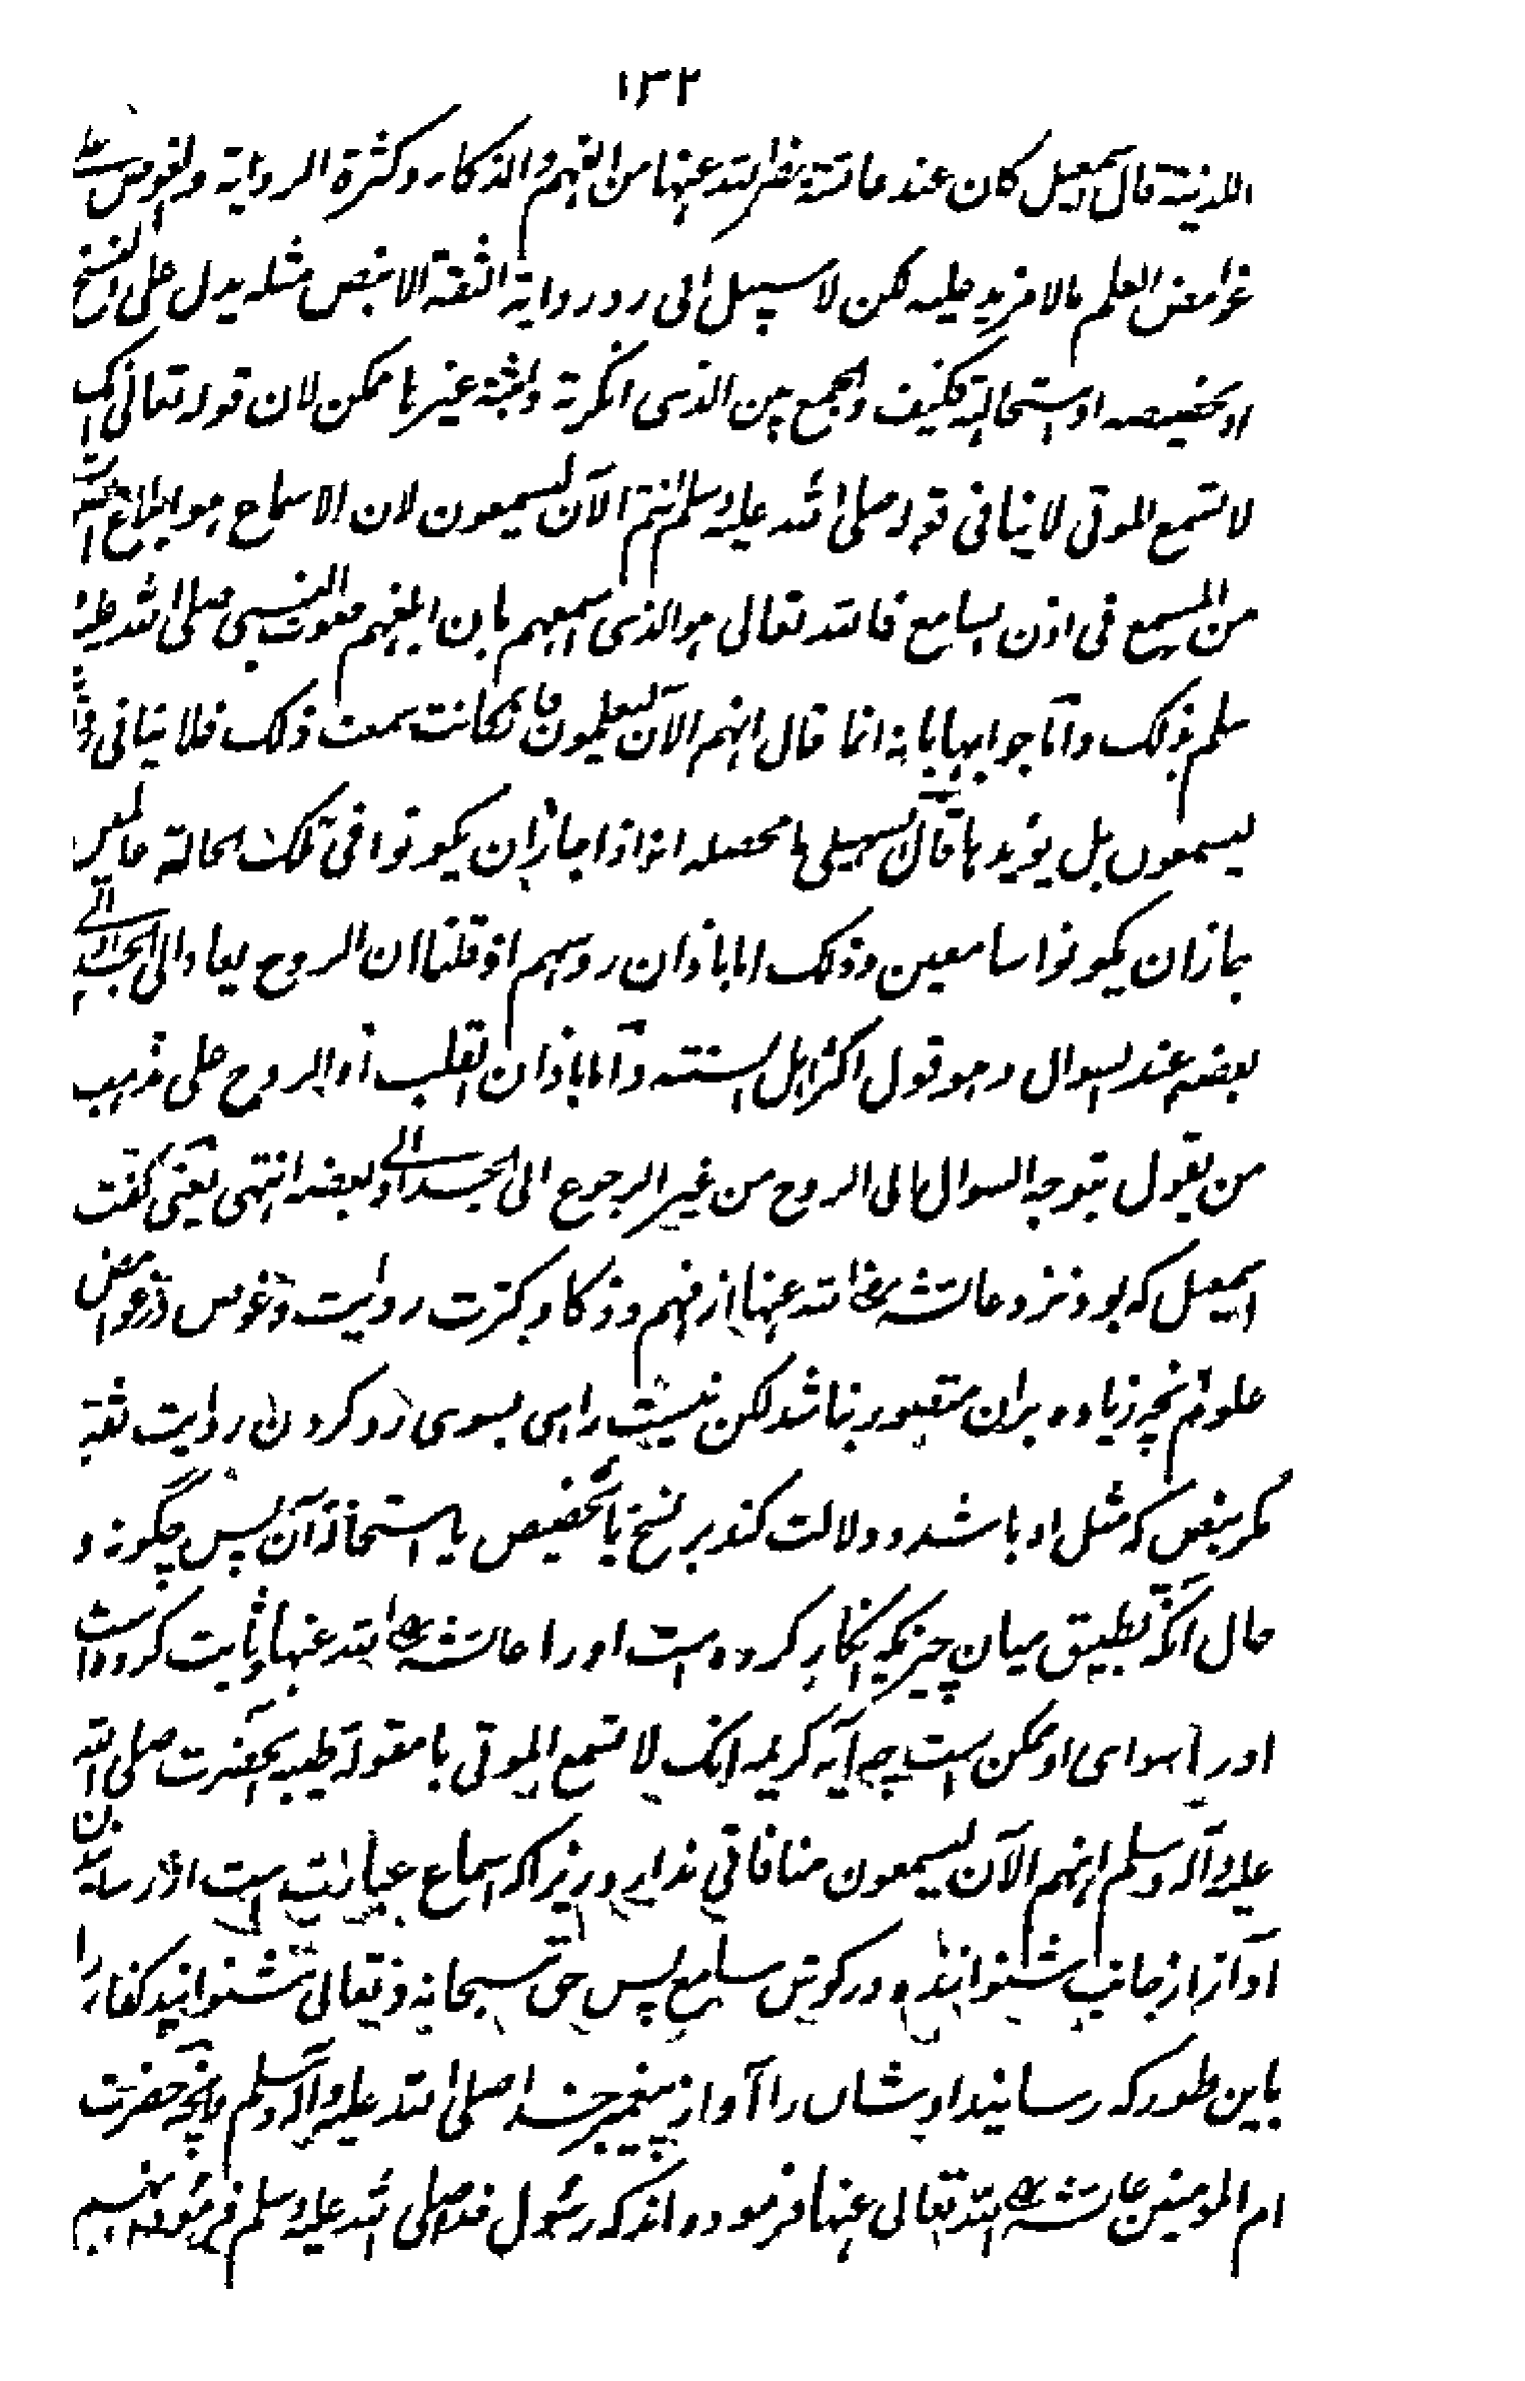 ۱۳۲
اللدنیة قال اسمعیل کان عند عائشة رضی الله عنها من الفهم والذکاء وکثرة الروایة والغوص علی
غوامض العلم مالا مزید علیه لکن لا سبیل الی رد روایة الثقة الا بنص مثله یدل علی النسخ
او تخصیصه او استحالته فکیف والجمع بین الذی انکرته واثبته غیرها ممکن لان قوله تعالی انک
لا تسمع الموتی لا ینافی قوله صلی الله علیه وسلم انهم الآن لیسمعون لان الاسماع هو ابلاغ الصوت
من المسمع فی اذن السامع فالله تعالی هو الذی اسمعهم بان ابلغهم صوت النبی صلی الله علیه و
سلم بذلک واما جوابها بانه انما قال انهم الآن لیعلمون فان کانت سمعت ذلک فلا ینافی روایة
لیسمعون بل یؤیدها قال السهیلی ما محصله انه اذا جاز ان یکونوا فی تلک الحالة عالمین
جاز ان یکونوا سامعین وذلک اما باذان روسهم اذ قلنا ان الروح یعاد الی الجسد او الی
بعضه عند السوال وهو قول اکثر اهل السنته واما باذان القلب او الروح علی مذهب
من یقول بتوجه السوال الی الروح من غیر الرجوع الی الجسد او الی بعضه انتهی یعنی گفت
اسمعیل که بود نزد عائشه رضی الله عنها از فهم و ذکا و کثرت روایت و غوص در غوامض
علوم آنچه زیاده بران متصور نباشد لکن نیست راهی بسوی رد کردن روایت ثقه
مگر بنص که مثل او باشد و دلالت کند بر نسخ یا تخصیص یا استحاله آن پس چگونه و
حال آنکه تطبیق میان چیزیکه انکار کرده است او را عائشه رضی الله عنها و ثابت کرده است
او را سوای او ممکن است چه آیه کریمه انک لا تسمع الموتی با مقوله طیبه آنحضرت صلی الله
علیه وآله وسلم انهم الآن لیسمعون منافاتی ندارد زیراکه اسماع عبارت است از رسانیدن
آواز از جانب شنواننده در گوش سامع پس حق سبحانه و تعالی شنوانید کفار را
باین طور که رسانید اوشان را آواز پیغمبر خدا صلی الله علیه وآله وسلم و آنچه حضرت
ام المومنین عائشه رضی الله تعالی عنها فرموده اند که رسول خدا صلی الله علیه وسلم فرموده انهم